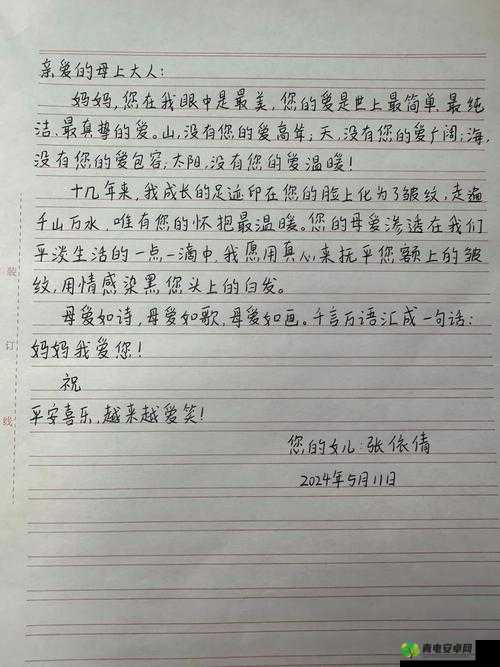 亲爱的母上大人:
妈妈,您在我眼中是最美,您的爱是世上最简单.最纯
洁.最真挚的爱。山,没有您的爱高耸;天,没有您的爱广阔;海,
没有您的爱包容;太阳,没有您的爱温暖!
十几年来,我成长的足迹印在您的脸上化为了皱纹,走遍
千山万水,唯有您的怀抱最温暖。您的母爱渗透在我们
平淡生活的一点一滴中.我愿用真心来抚平您额上的皱
纹,用情感染黑您头上的白发。
母爱如诗,母爱如歌,母爱如画。千言万语汇成一句话:
妈妈我爱您!
祝
平安喜乐,越来越爱笑!
您的女儿:张依倩
2024年5月11日
装
订
线
青电安卓网